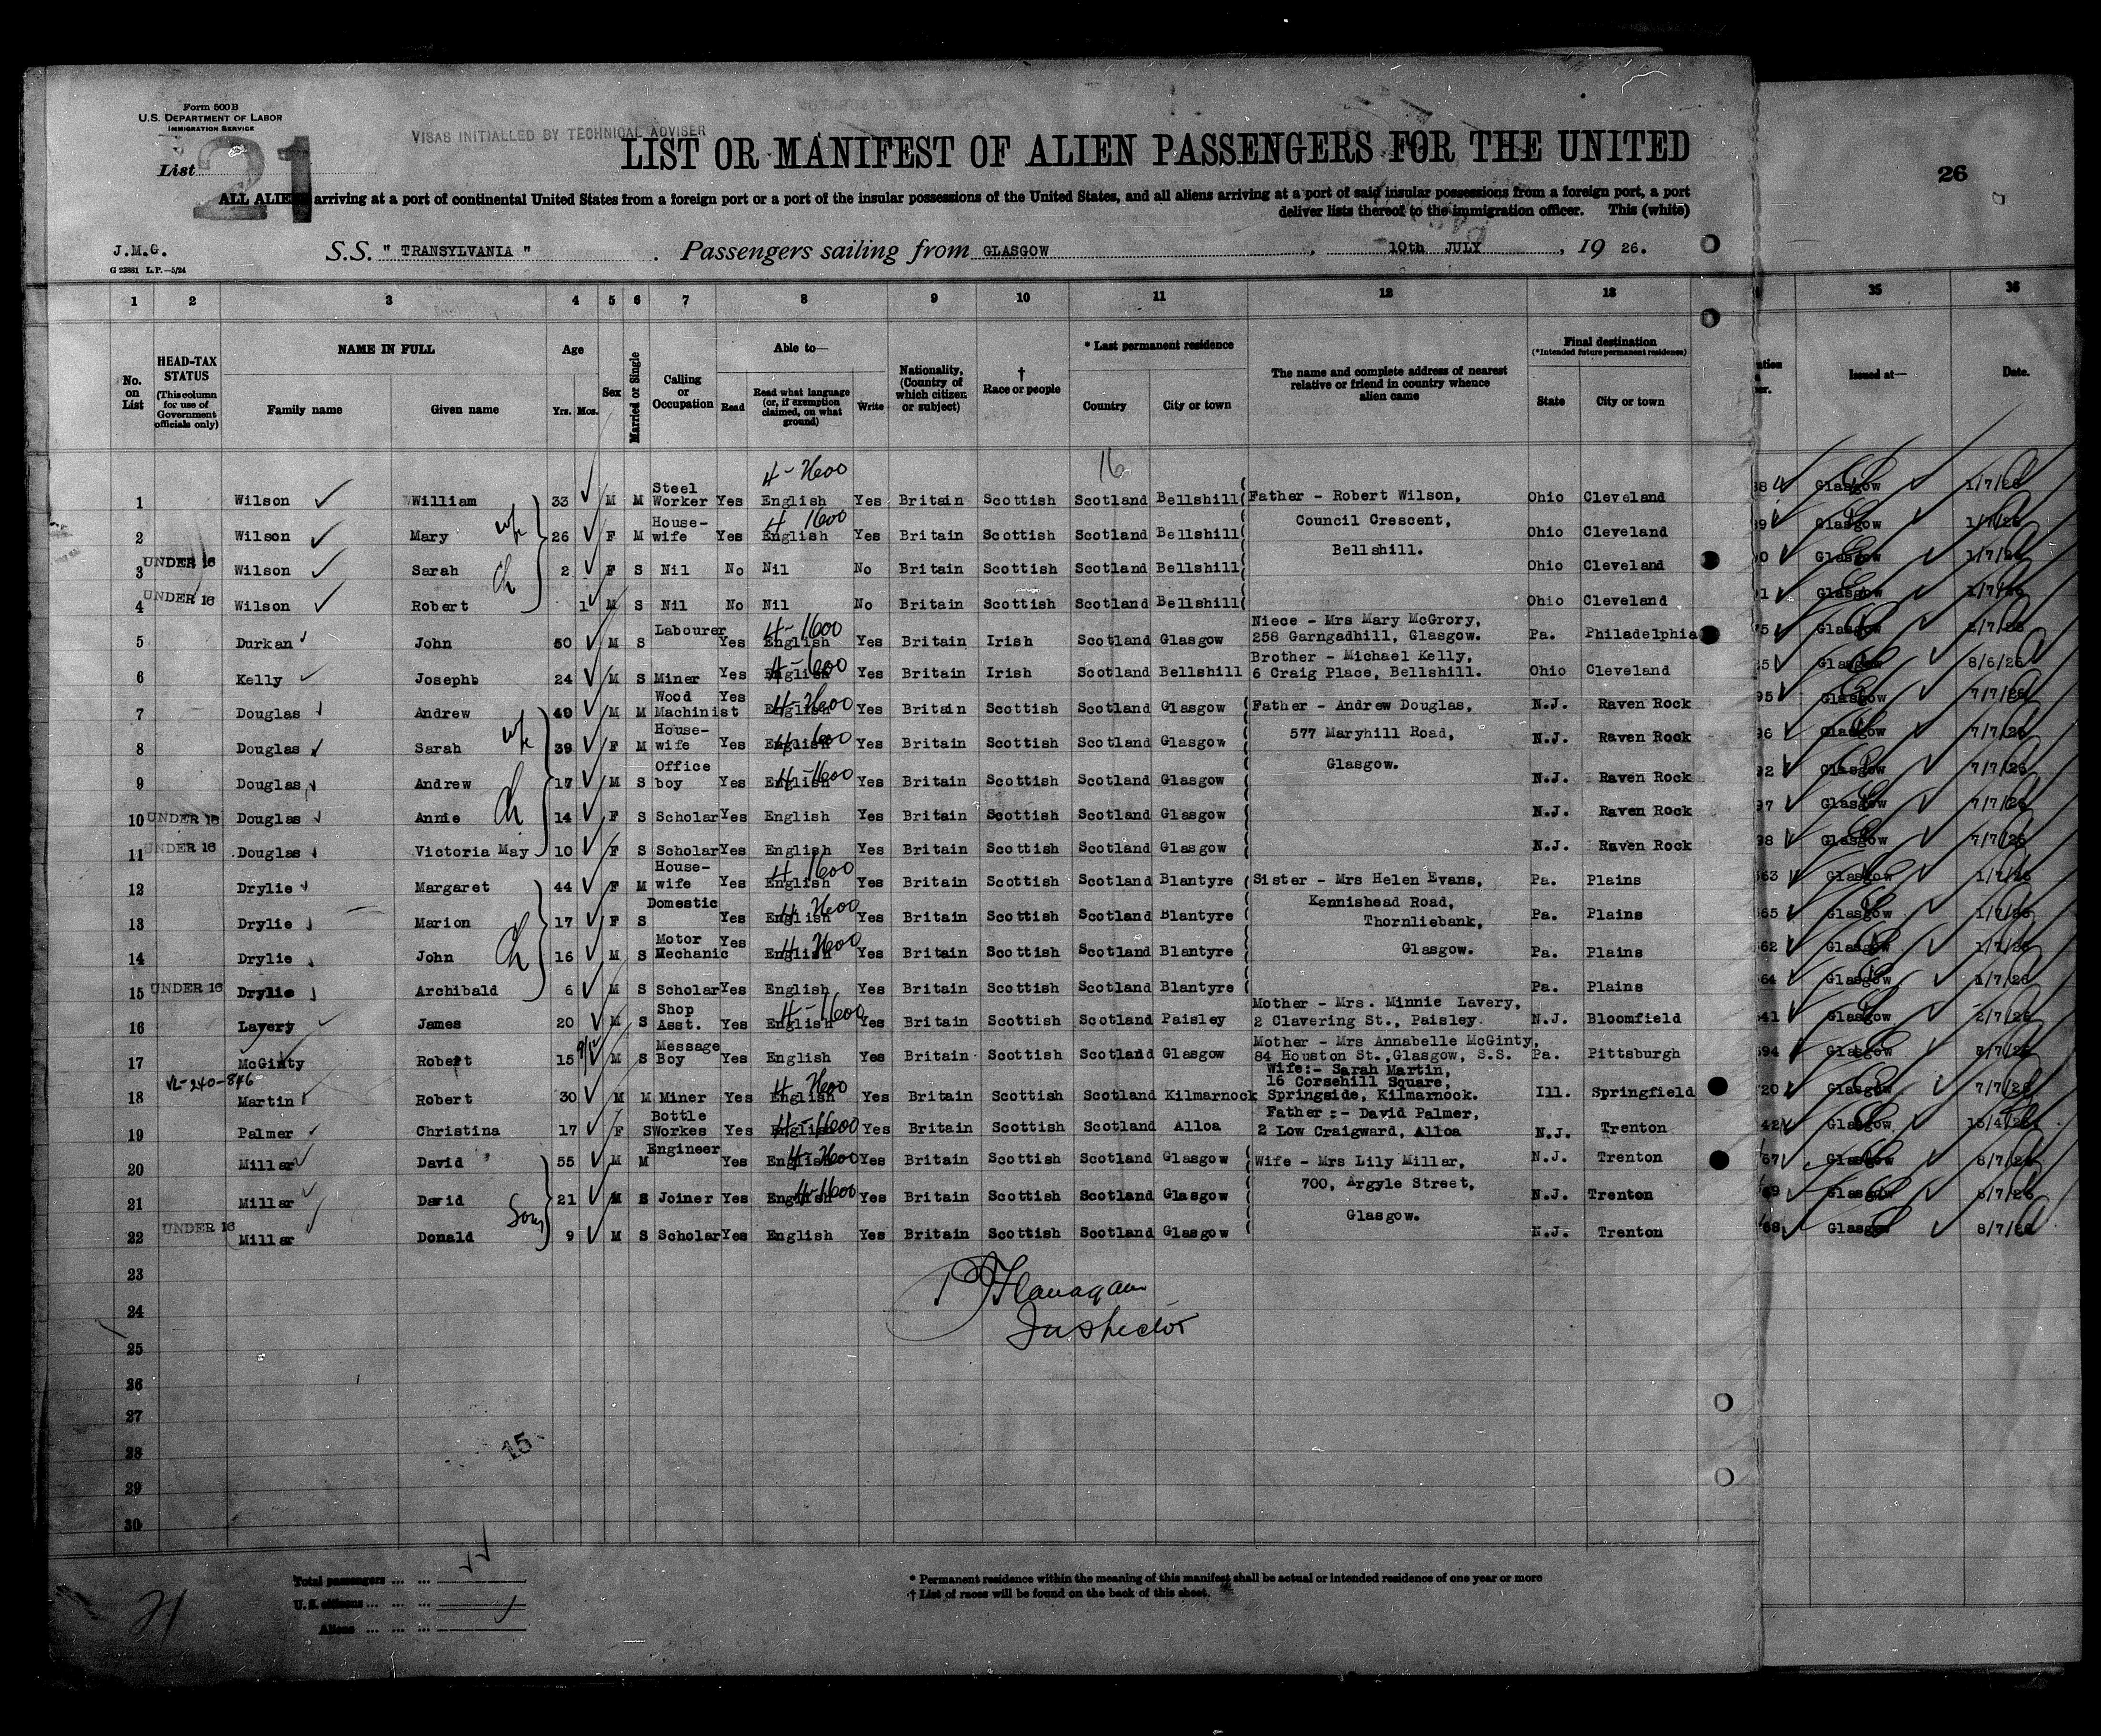 Form 500B
U.S. DEPARTMENT OF LABOR
IMMIGRATION SERVICE
VISAS INITIALLED BY TECHNICAL ADVISER
List 21
LIST OR MANIFEST OF ALIEN PASSENGERS FOR THE UNITED
26
ALL ALIENS arriving at a port of continental United States from a foreign port or a port of the insular possessions of the United States, and all aliens arriving at a port of said insular possessions from a foreign port, a port
deliver lists thereof to the immigration officer. This (white)
J.M.G.
G 23881 L.P.—5/24
S.S. " TRANSYLVANIA " . Passengers sailing from GLASGOW , 10th JULY , 19 26.
1 2 3 4 5 6 7 8 9 10 11 12 13 35 36
No. on List
HEAD-TAX STATUS (This column for use of Government officials only)
NAME IN FULL
Family name Given name
Age
Yrs. Mos.
Sex
Married or Single
Calling or Occupation
Able to—
Read
Read what language (or, if exemption claimed, on what ground)
Write
Nationality, (Country of which citizen or subject)
† Race or people
* Last permanent residence
Country City or town
The name and complete address of nearest relative or friend in country whence alien came
Final destination
(*Intended future permanent residence)
State City or town
Issued at— Date.
16
1 Wilson William 33 M M Steel Worker Yes English Yes Britain Scottish Scotland Bellshill Father - Robert Wilson, Ohio Cleveland Glasgow 1/7/26
2 Wilson Mary wife 26 F M House-wife Yes English Yes Britain Scottish Scotland Bellshill Council Crescent, Ohio Cleveland Glasgow 1/7/26
UNDER 16
3 Wilson Sarah ch 2 F S Nil No Nil No Britain Scottish Scotland Bellshill Bellshill. Ohio Cleveland Glasgow 1/7/26
UNDER 16
4 Wilson Robert 1 M S Nil No Nil No Britain Scottish Scotland Bellshill Ohio Cleveland Glasgow 1/7/26
5 Durkan John 50 M S Labourer Yes English Yes Britain Irish Scotland Glasgow Niece - Mrs Mary McGrory, 258 Garngadhill, Glasgow. Pa. Philadelphia Glasgow 2/7/26
6 Kelly Joseph 24 M S Miner Yes English Yes Britain Irish Scotland Bellshill Brother - Michael Kelly, 6 Craig Place, Bellshill. Ohio Cleveland Glasgow 8/6/26
7 Douglas Andrew 49 M M Wood Machinist Yes English Yes Britain Scottish Scotland Glasgow Father - Andrew Douglas, N.J. Raven Rock Glasgow 7/7/26
8 Douglas Sarah 39 F M House-wife Yes English Yes Britain Scottish Scotland Glasgow 577 Maryhill Road, N.J. Raven Rock Glasgow 7/7/26
9 Douglas Andrew 17 M S Office boy Yes English Yes Britain Scottish Scotland Glasgow Glasgow. N.J. Raven Rock Glasgow 7/7/26
10 UNDER 16 Douglas Annie ch 14 F S Scholar Yes English Yes Britain Scottish Scotland Glasgow N.J. Raven Rock Glasgow 7/7/26
11 UNDER 16 Douglas Victoria May 10 F S Scholar Yes English Yes Britain Scottish Scotland Glasgow N.J. Raven Rock Glasgow 7/7/26
12 Drylie Margaret 44 F M House-wife Yes English Yes Britain Scottish Scotland Blantyre Sister - Mrs Helen Evans, Pa. Plains Glasgow 1/7/26
13 Drylie Marion 17 F S Domestic Yes English Yes Britain Scottish Scotland Blantyre Kennishead Road, Thornliebank, Pa. Plains Glasgow 1/7/26
14 Drylie John ch 16 M S Motor Mechanic Yes English Yes Britain Scottish Scotland Blantyre Glasgow. Pa. Plains Glasgow 1/7/26
15 UNDER 16 Drylie Archibald 6 M S Scholar Yes English Yes Britain Scottish Scotland Blantyre Pa. Plains Glasgow 1/7/26
16 Lavery James 20 M S Shop Asst. Yes English Yes Britain Scottish Scotland Paisley Mother - Mrs. Minnie Lavery, 2 Clavering St., Paisley. N.J. Bloomfield Glasgow 2/7/26
17 McGinty Robert 15 M S Message Boy Yes English Yes Britain Scottish Scotland Glasgow Mother - Mrs Annabelle McGinty, 84 Houston St., Glasgow, S.S. Pa. Pittsburgh Glasgow 7/7/26
18 Martin Robert 30 M M Miner Yes English Yes Britain Scottish Scotland Kilmarnock Wife:- Sarah Martin, 16 Corsehill Square, Springside, Kilmarnock. Ill. Springfield Glasgow 7/7/26
19 Palmer Christina 17 F S Bottle Workes Yes English Yes Britain Scottish Scotland Alloa Father :- David Palmer, 2 Low Craigward, Alloa N.J. Trenton Glasgow 15/4/26
20 Millar David 55 M M Engineer Yes English Yes Britain Scottish Scotland Glasgow Wife - Mrs Lily Millar, N.J. Trenton Glasgow 8/7/26
21 Millar David 21 M S Joiner Yes English Yes Britain Scottish Scotland Glasgow 700, Argyle Street, N.J. Trenton Glasgow 8/7/26
UNDER 16
22 Millar Donald Sons 9 M S Scholar Yes English Yes Britain Scottish Scotland Glasgow Glasgow. N.J. Trenton Glasgow 8/7/26
23
Flanagan
24
Inspector
25
26
27
28
15
29
30
Total passengers ... ...
U.S. citizens ... ... ...
Aliens ... ... ...
21
* Permanent residence within the meaning of this manifest shall be actual or intended residence of one year or more
† List of races will be found on the back of this sheet.